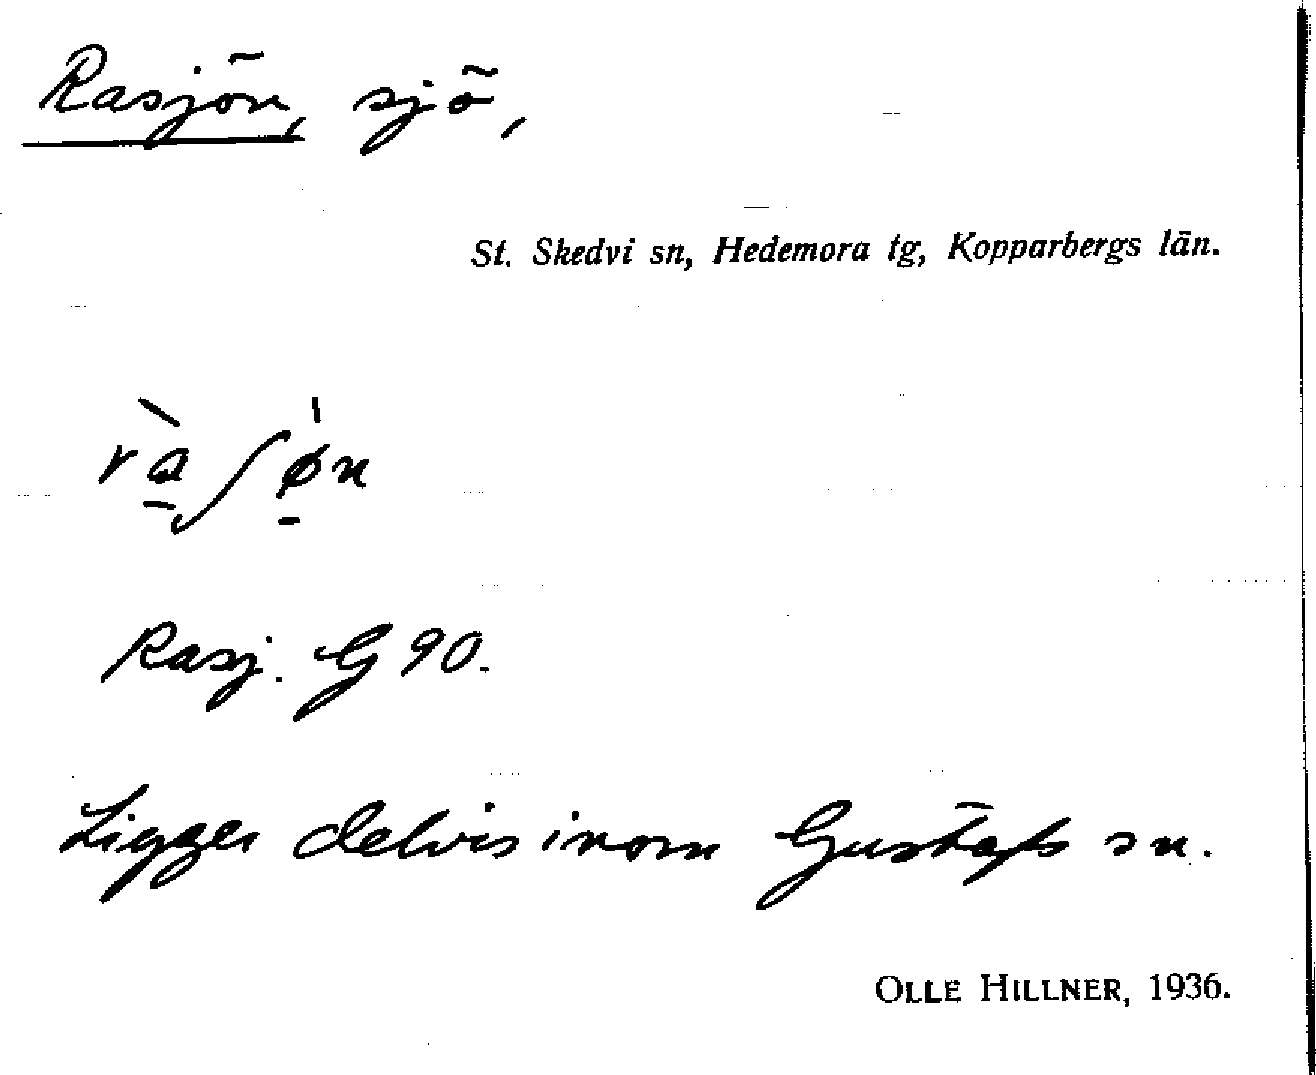 Rasjön, sjö,
St. Skedvi sn, Hedemora tg, Kopparbergs län.
rà̱ʃø̱̍n
Rasj. G 90.
Ligger delvis inom Gustafs sn.
OLLE HILLNER, 1936.